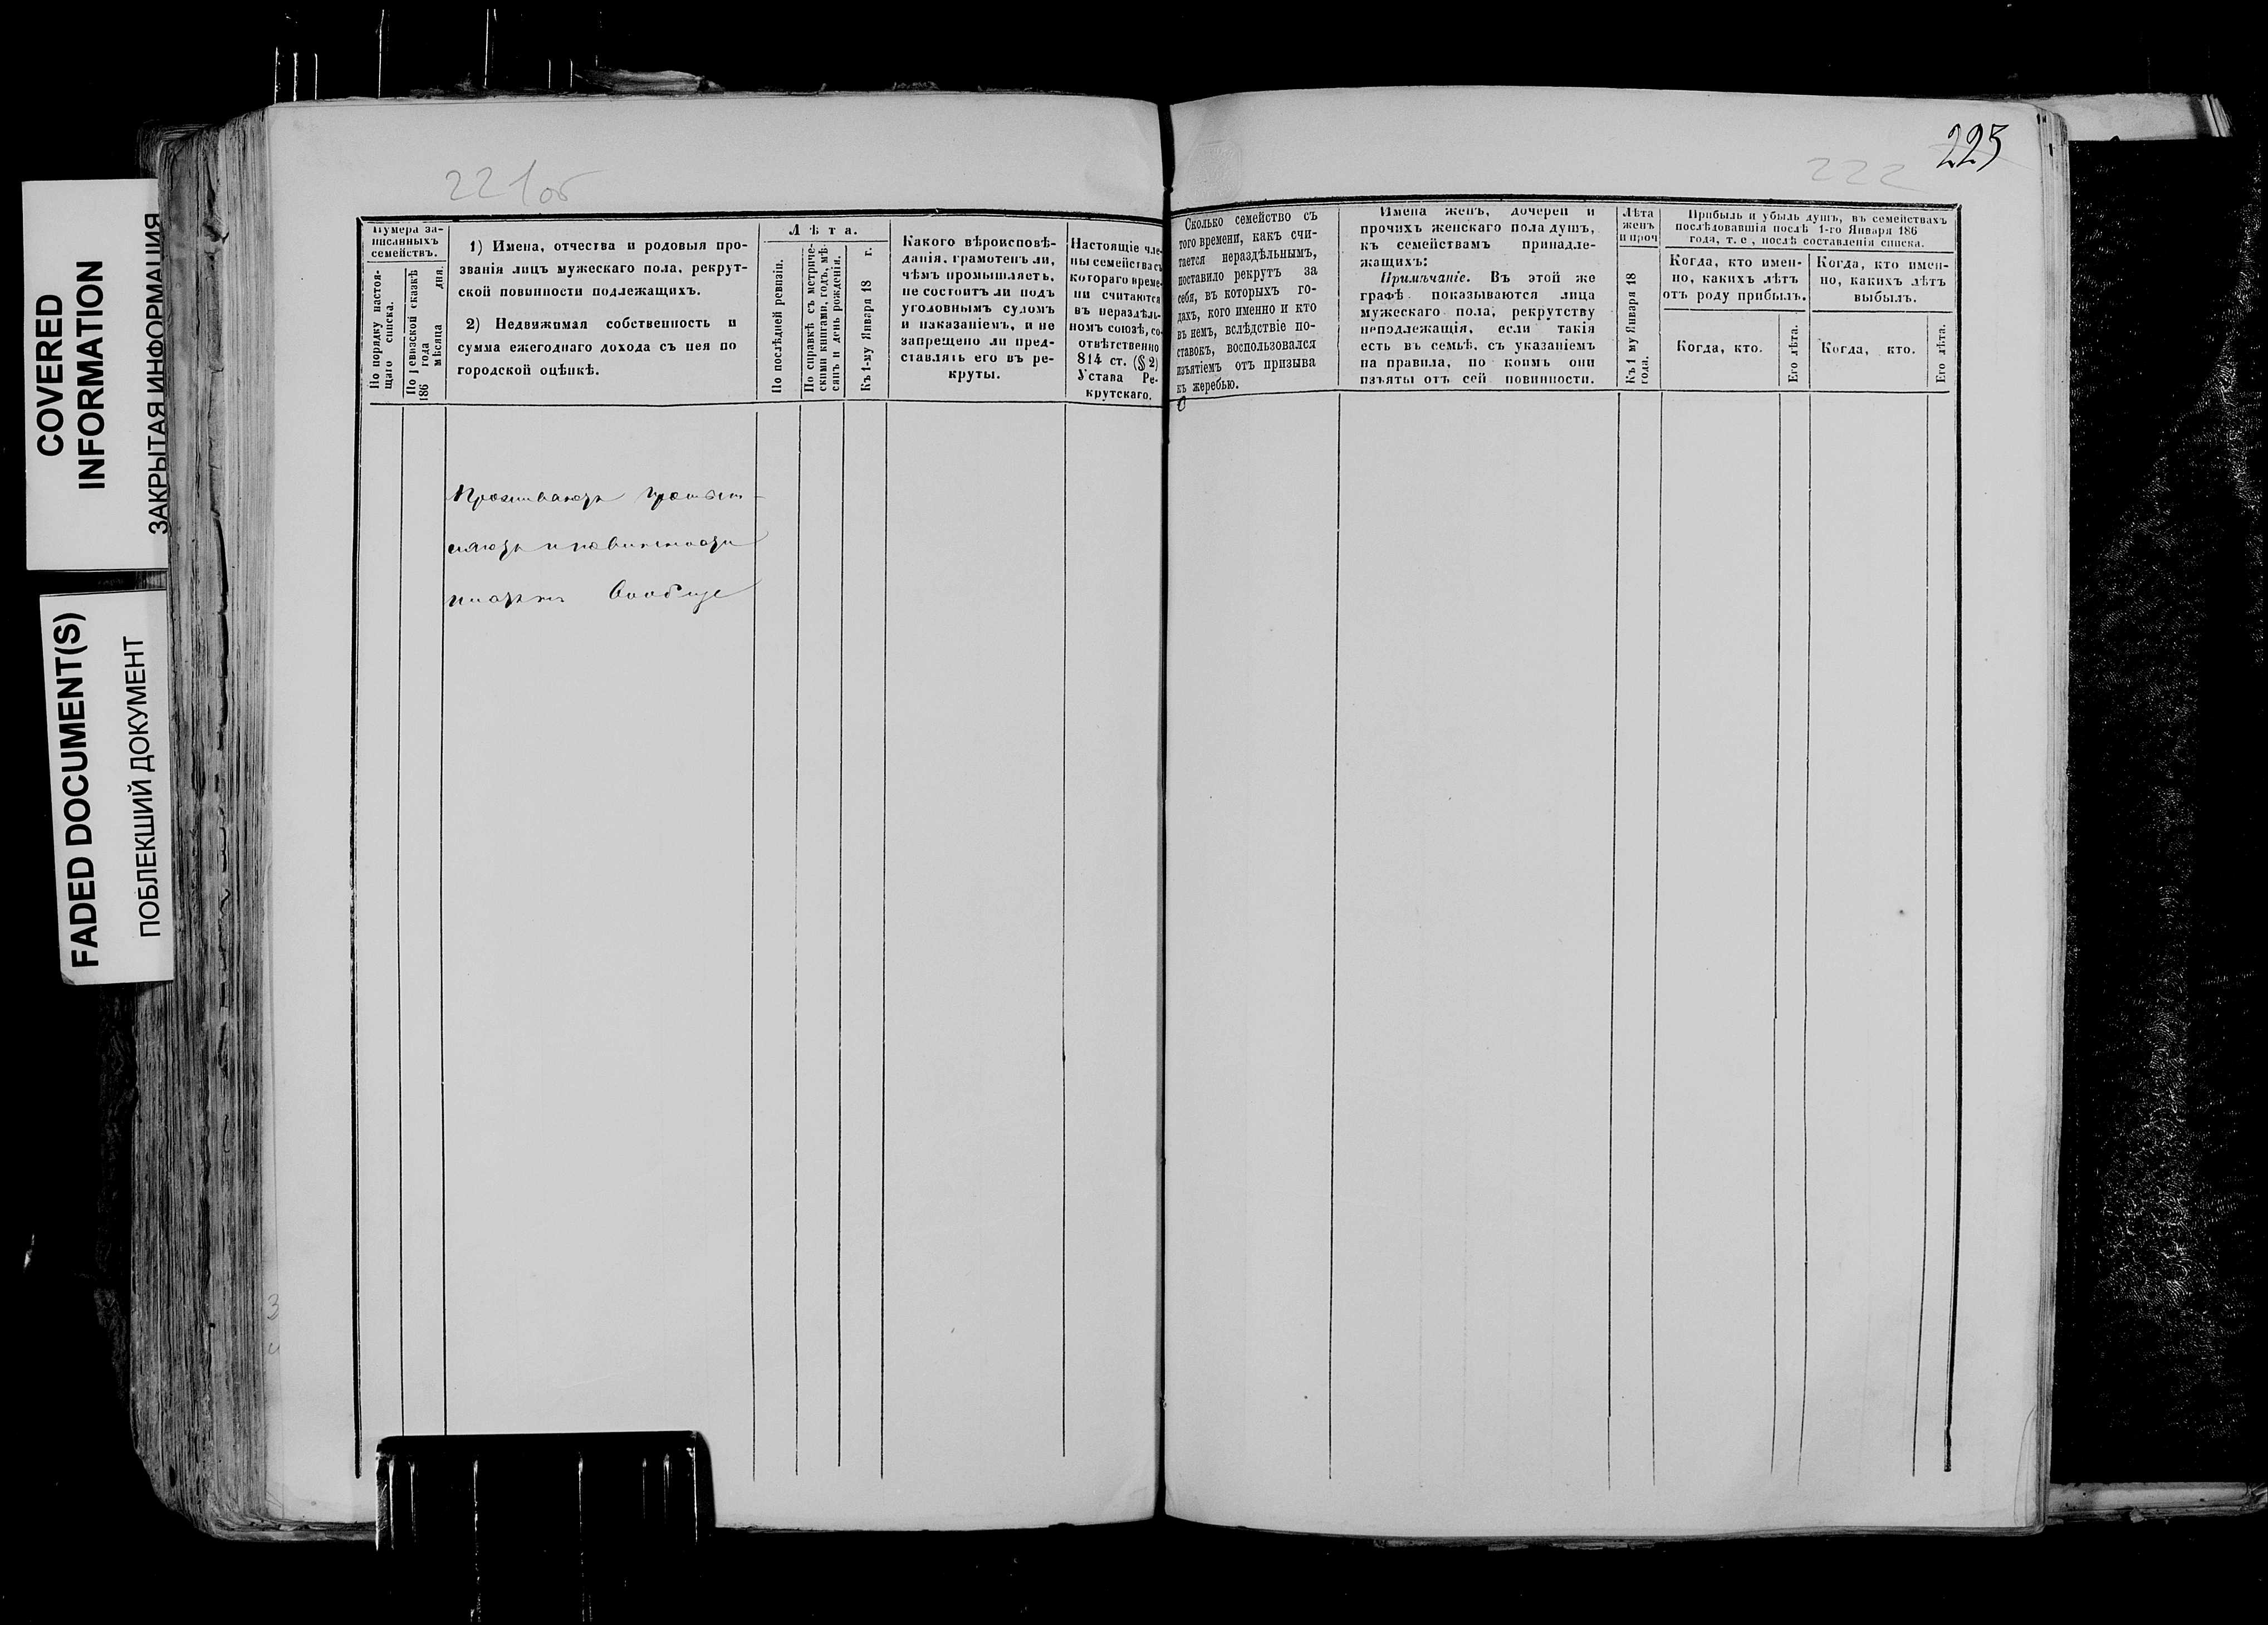 COVERED
INFORMATION
ЗАКРЫТАЯ ИНФОРМАЦИЯ
FADED DOCUMENT(S)
ПОБЛЕКШИЙ ДОКУМЕНТ
221об
Нумера за-
писанныхъ
семействъ.
По порядку настоя-
щаго списка.
По ревизской сказкѣ
186 года мѣсяца дня.
1) Имена, отчества и родовыя про-
званія лицъ мужескаго пола, рекрут-
ской повинности подлежащихъ.
2) Недвижимая собственность и
сумма ежегоднаго дохода съ нея по
городской оцѣнкѣ.
Лѣта.
По послѣдней ревизіи.
По справкѣ съ метриче-
скими книгами, годъ, мѣ-
сяцъ и день рожденія.
Къ 1-му Января 18 г.
Какого вѣроисповѣ-
данія, грамотенъ ли,
чѣмъ промышляетъ,
не состоитъ ли подъ
уголовнымъ судомъ
и наказаніемъ, и не
запрещено ли пред-
ставлять его въ ре-
круты.
Настоящіе чле-
ны семейства съ
котораго време-
ни считаются
въ нераздѣль-
номъ союзѣ, со-
отвѣтственно
814 ст. (§ 2)
Устава Ре-
крутскаго.
вообще
222
223
Сколько семейство съ
того времени, какъ счи-
тается нераздѣльнымъ,
поставило рекрутъ за
себя, въ которыхъ го-
дахъ, кого именно и кто
въ немъ, вслѣдствіе по-
ставокъ, воспользовался
изъятіемъ отъ призыва
къ жеребью.
Имена женъ, дочерей и
прочихъ женскаго пола душъ,
къ семействамъ принадле-
жащихъ:
Примѣчаніе. Въ этой же
графѣ показываются лица
мужескаго пола, рекрутству
неподлежащія, если такія
есть въ семьѣ, съ указаніемъ
на правила, по коимъ они
изъяты отъ сей повинности.
Лѣта
женъ
и проч
Къ 1 му Января 18
года.
Прибыль и убыль душъ, въ семействахъ
послѣдовавшія послѣ 1-го Января 186
года, т. е., послѣ составленія списка.
Когда, кто имен-
но, какихъ лѣтъ
отъ роду прибылъ.
Когда, кто.
Его лѣта.
Когда, кто имен-
но, какихъ лѣтъ
выбылъ.
Когда, кто.
Его лѣта.